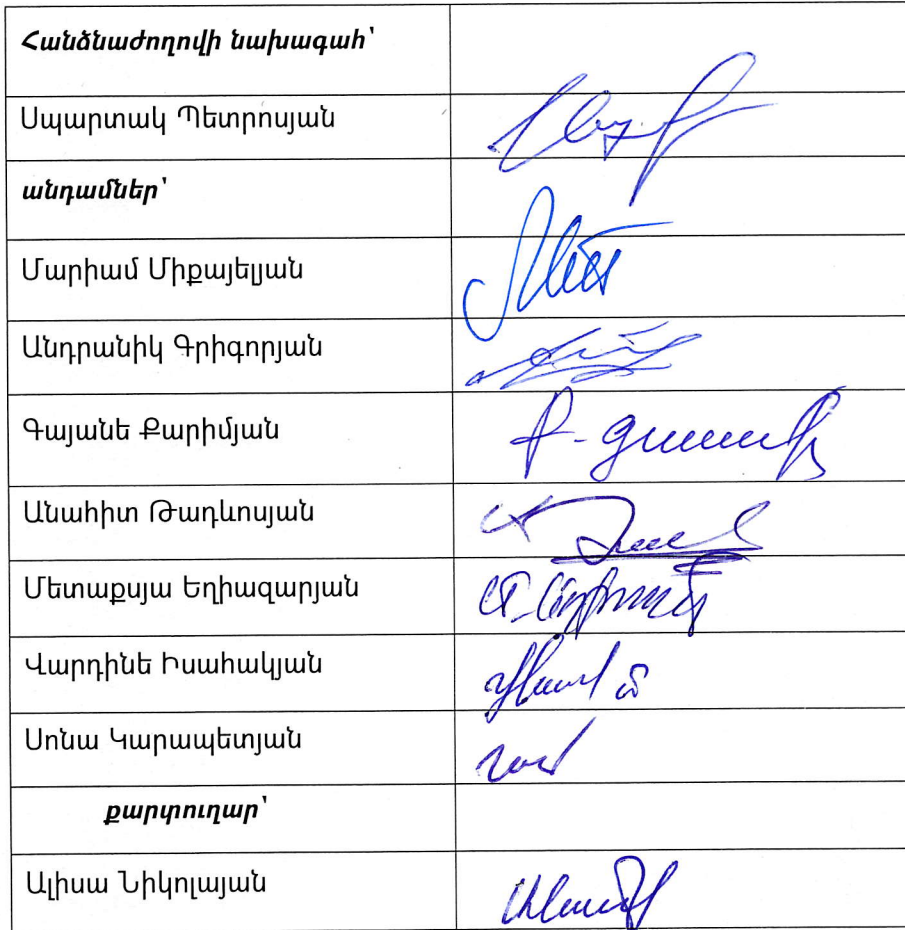 Հանձնաժողովի նախագահ՝
Սպարտակ Պետրոսյան
անդամներ՝
Մարիամ Միքայելյան
Անդրանիկ Գրիգորյան
Գայանե Քարիմյան
Անահիտ Թադևոսյան
Մետաքսյա Եղիազարյան
Վարդինե Իսահակյան
Սոնա Կարապետյան
քարտուղար՝
Ալիսա Նիկոլայան